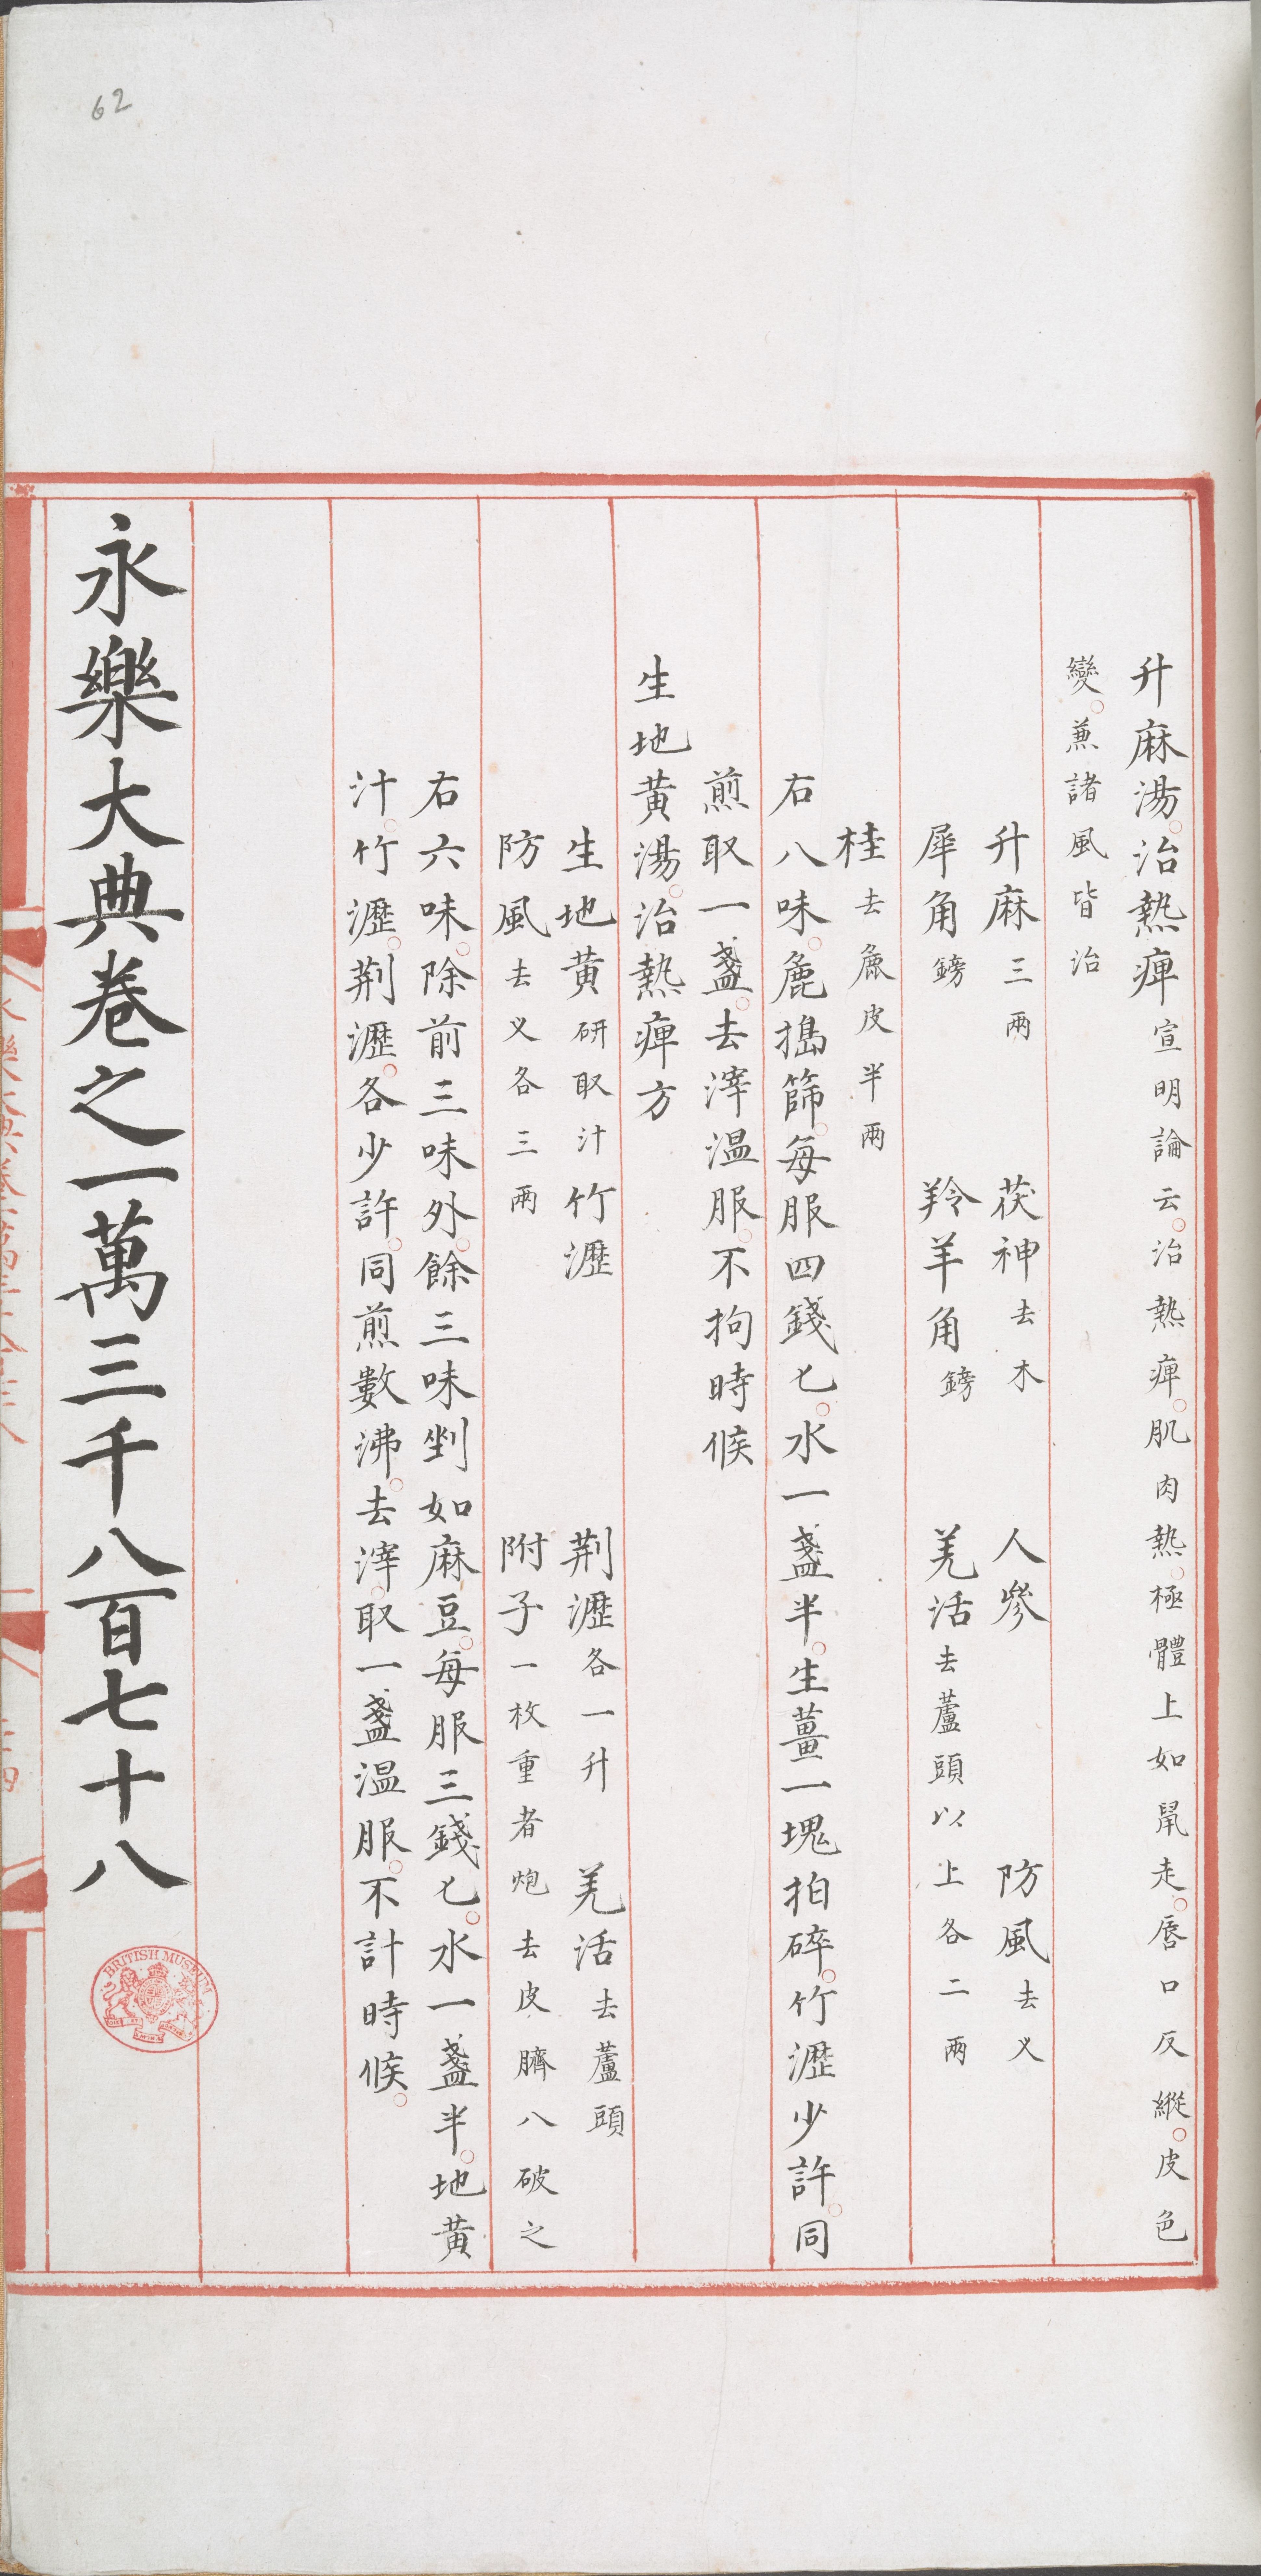 62
升麻湯治熱痺宣明論云治熱痺肌肉熱極體上如鼠走唇口反縱皮色
變兼諸風皆治
升麻三兩 茯神去木 人參 防風去义
犀角鎊 羚羊角鎊 羌活去蘆頭以上各二兩
桂去麁皮半兩
右八味麁搗篩每服四錢匕水一盞半生薑一塊拍碎竹瀝少許同
煎取一盞去滓温服不拘時候
生地黄湯治熱痺方
生地黄研取汁竹瀝 荆瀝各一升 羌活去蘆頭
防風去义各三兩 附子一枚重者炮去皮臍八破之
右六味除前三味外餘三味剉如麻豆每服三錢匕水一盞半地黄
汁竹瀝荆瀝各少許同煎數沸去滓取一盞温服不計時候
永樂大典卷之一萬三千八百七十八
BRITISH MUSEUM